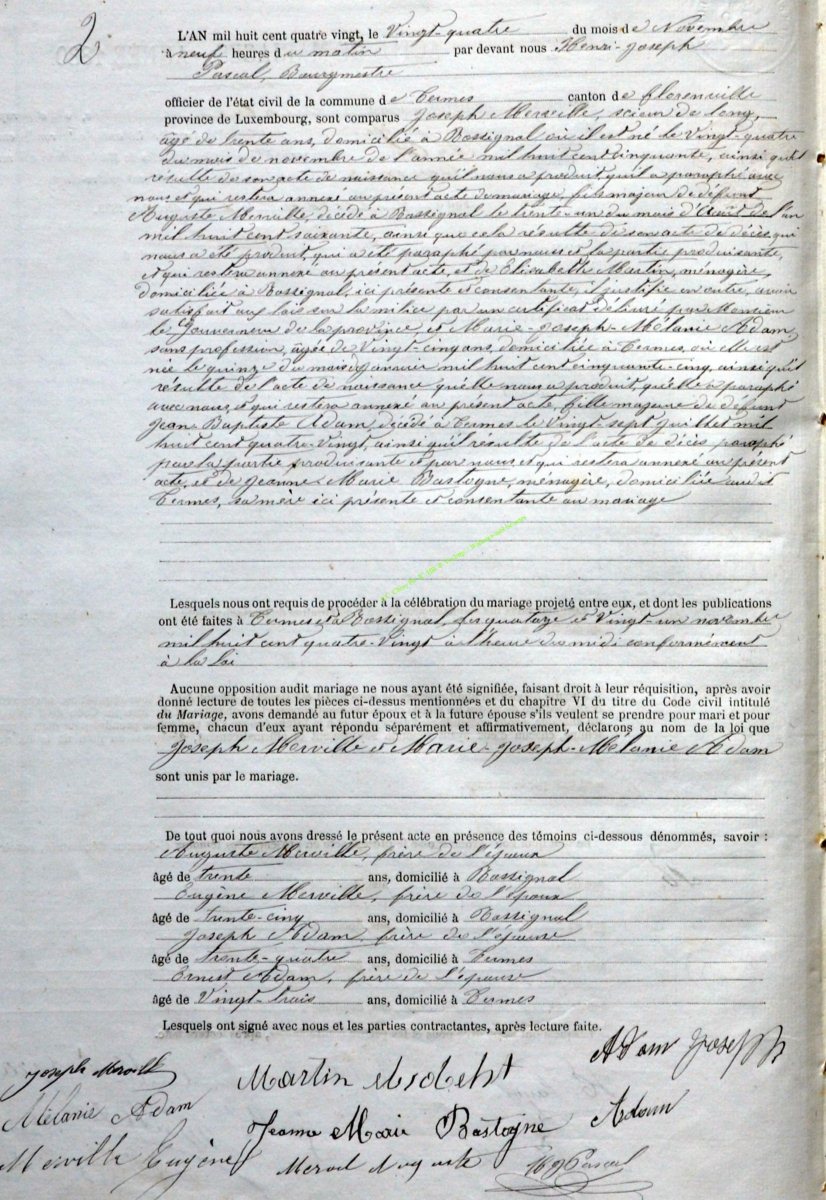 2
L'AN mil huit cent quatre vingt, le Vingt-quatre du mois de Novembre
à neuf heures du matin par devant nous Henri-Joseph
Pascal, Bourgmestre
officier de l'état civil de la commune de Termes canton de florenville
province de Luxembourg, sont comparus Joseph Merville, scieur de long,
âgé de trente ans, domicilié à Bossignal où il est né le Vingt-quatre
du mois de novembre de l'année mil huit cent cinquante, ainsi qu'il
résulte de son acte de naissance qu'il nous a produit, qu'il a paraphé avec
nous et qui restera annexé au présent acte de mariage, fils majeur de défunt
Auguste Merville, décédé à Bossignal le trente-un du mois d'Août de l'an
mil huit cent soixante, ainsi que cela résulte de son acte de décès, qui
nous a été produit, qui a été paraphé par nous et la partie produisante,
et qui restera annexé au présent acte, et de Elisabeth Martin, ménagère,
domiciliée à Bossignal, ici présente et consentante, il justifie en outre, avoir
satisfait aux lois sur la milice par un certificat délivré par Monsieur
le Gouverneur de la province, et Marie-Joseph-Mélanie Adam
sans profession, âgée de Vingt-cinq ans, domiciliée à Termes, où elle est
née le quinze du mois de Janvier mil huit cent cinquante-cinq, ainsi qu'il
résulte de l'acte de naissance qu'elle nous a produit, qu'elle a paraphé
avec nous, et qui restera annexé au présent acte, fille majeure de défunt
Jean Baptiste Adam, décédé à Termes le Vingt-sept juillet mil
huit cent quatre-Vingt, ainsi qu'il résulte de l'acte de décès paraphé
par la partie produisante et par nous, et qui restera annexé au présent
acte, et de Jeanne Marie Bastogne, ménagère, domiciliée audit
Termes, sa mère ici présente et consentante au mariage
Lesquels nous ont requis de procéder à la célébration du mariage projeté entre eux, et dont les publications
ont été faites à Termes et à Bossignal, les quatorze et Vingt-un novembre
mil huit cent quatre-Vingt à l'heure de midi conformément
à la loi
Aucune opposition audit mariage ne nous ayant été signifiée, faisant droit à leur réquisition, après avoir
donné lecture de toutes les pièces ci-dessus mentionnées et du chapitre VI du titre du Code civil intitulé
du Mariage, avons demandé au futur époux et à la future épouse s'ils veulent se prendre pour mari et pour
femme, chacun d'eux ayant répondu séparément et affirmativement, déclarons au nom de la loi que
Joseph Merville et Marie-Joseph-Mélanie Adam
sont unis par le mariage.
De tout quoi nous avons dressé le présent acte en présence des témoins ci-dessous dénommés, savoir :
Auguste Merville, frère de l'époux
âgé de trente ans, domicilié à Bossignal
Eugène Merville, frère de l'époux
âgé de trente-cinq ans, domicilié à Bossignal
Joseph Adam, frère de l'épouse
âgé de trente-quatre ans, domicilié à Termes
Ernest Adam, frère de l'épouse
âgé de Vingt-trois ans, domicilié à Termes
Lesquels ont signé avec nous et les parties contractantes, après lecture faite.
Adam Joseph
Joseph Mervill
Martin
Mélanie Adam
Jeanne Marie Bastogne
Adam
Merville Eugène
Auguste
Pascal